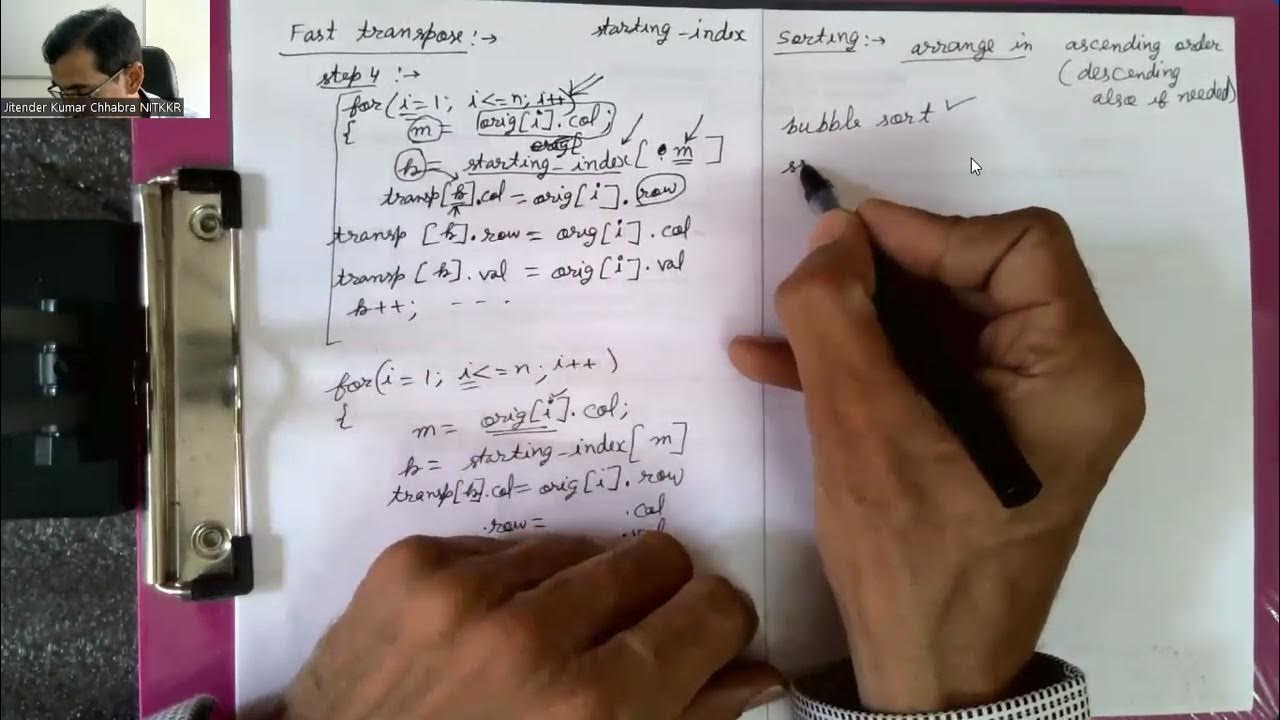 Jitender Kumar Chhabra NITKKR
Fast transpose :→ starting-index
step 4 :→
for(i=1; i<=n; i++)
{ m = orig[i].col;
k = starting-index[ m ]
transp[k].col = orig[i].row
transp [k].row = orig[i].col
transp [k].val = orig[i].val
k++; - - -
for(i=1; i<=n; i++)
{
m = orig[i].col;
k = starting-index[ m ]
transp[k].col = orig[i].row
.row = .col
Sorting :→ arrange in ascending order
(descending
also if needed)
bubble sort ✓